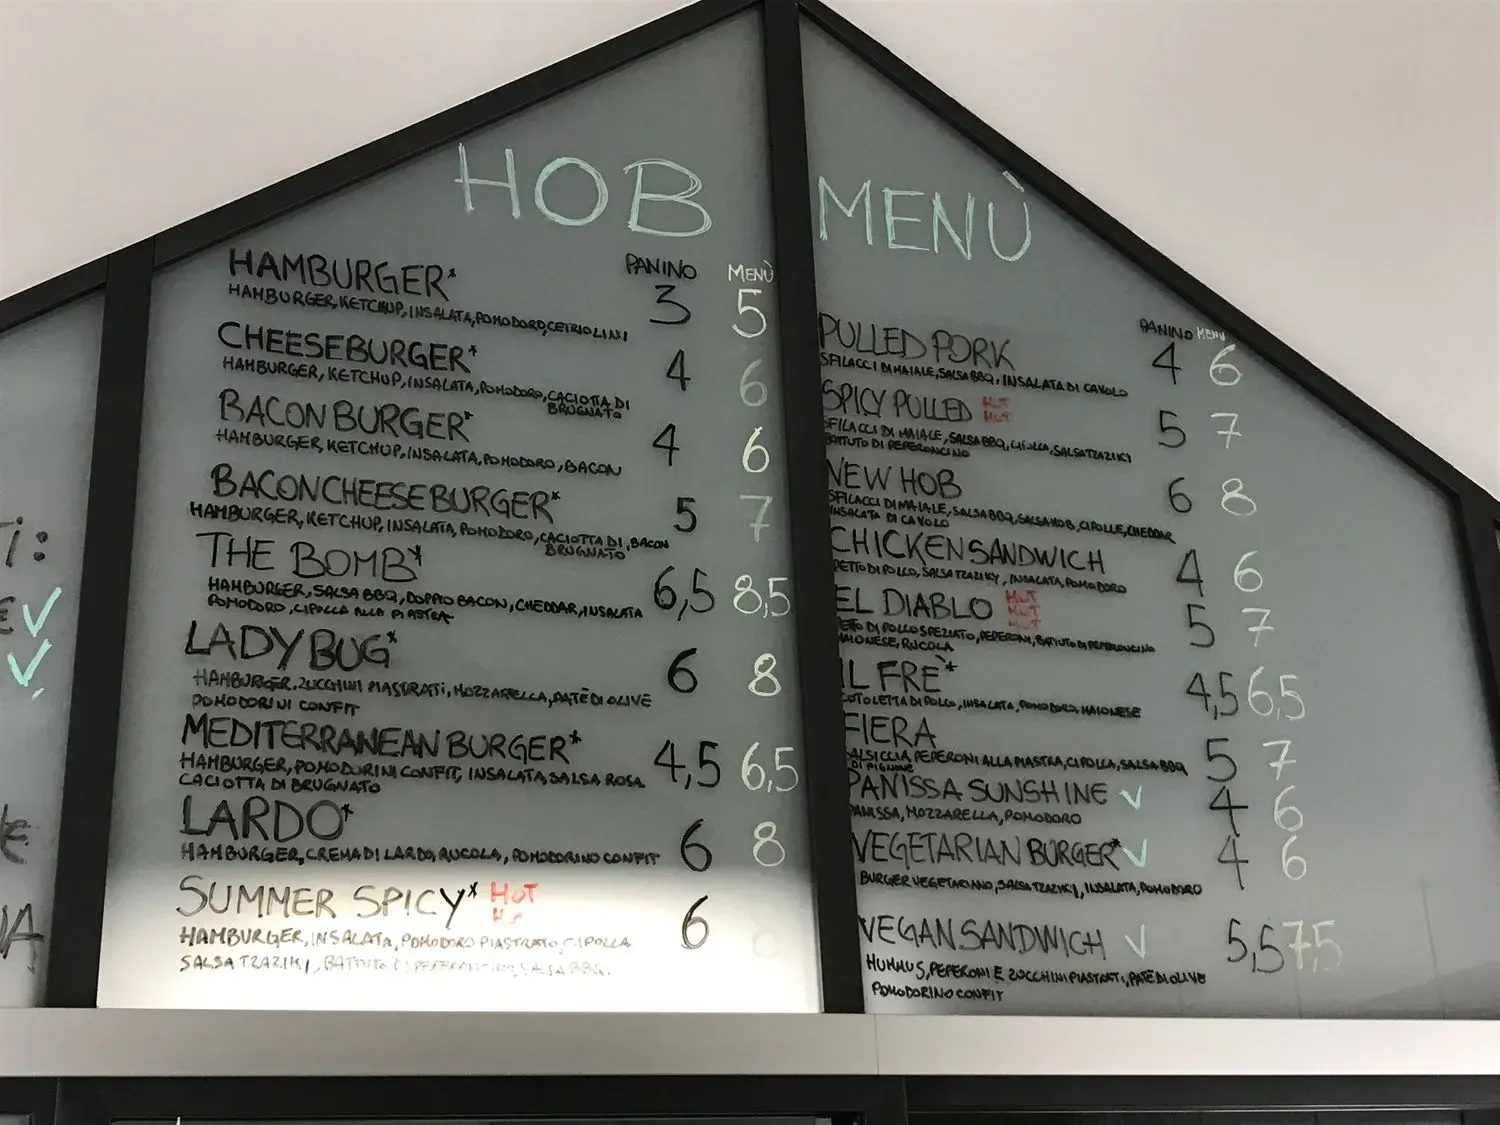 HOB MENÙ
PANINO MENÙ
HAMBURGER* 3 5
HAMBURGER, KETCHUP, INSALATA, POMODORO, CETRIOLINI
CHEESEBURGER* 4 6
HAMBURGER, KETCHUP, INSALATA, POMODORO, CACIOTTA DI
BRUGNATO
BACON BURGER* 4 6
HAMBURGER, KETCHUP, INSALATA, POMODORO, BACON
BACONCHEESEBURGER* 5 7
HAMBURGER, KETCHUP, INSALATA, POMODORO, CACIOTTA DI, BACON
BRUGNATO
THE BOMB* 6,5 8,5
HAMBURGER, SALSA BBQ, DOPPIO BACON, CHEDDAR, INSALATA
POMODORO, CIPOLLA ALLA PIASTRA
LADY BUG* 6 8
HAMBURGER, ZUCCHINI PIASTRATI, MOZZARELLA, PATÈ DI OLIVE
POMODORINI CONFIT
MEDITERRANEAN BURGER* 4,5 6,5
HAMBURGER, POMODORINI CONFIT, INSALATA, SALSA ROSA
CACIOTTA DI BRUGNATO
LARDO* 6 8
HAMBURGER, CREMA DI LARDO, RUCOLA, POMODORINO CONFIT
SUMMER SPICY* HOT 6 8
HAMBURGER, INSALATA, POMODORO PIASTRATO, CIPOLLA
SALSA TZAZIKI, BATTUTO DI PEPERONCINO, SALSA BBQ.
PANINO MENÙ
PULLED PORK 4 6
SFILACCI DI MAIALE, SALSA BBQ, INSALATA DI CAVOLO
SPICY PULLED HOT HOT 5 7
SFILACCI DI MAIALE, SALSA BBQ, CIPOLLA, SALSA TZAZIKI
BATTUTO DI PEPERONCINO
NEW HOB 6 8
SFILACCI DI MAIALE, SALSA BBQ, SALSA HOB, CIPOLLE, CHEDDAR
INSALATA DI CAVOLO
CHICKEN SANDWICH 4 6
PETTO DI POLLO, SALSA TZAZIKY, INSALATA, POMODORO
EL DIABLO HOT HOT HOT 5 7
PETTO DI POLLO SPEZIATO, PEPERONI, BATTUTO DI PEPERONCINO
MAIONESE, RUCOLA
IL FRÈ* 4,5 6,5
COTOLETTA DI POLLO, INSALATA, POMODORO, MAIONESE
FIERA 5 7
SALSICCIA, PEPERONI ALLA PIASTRA, CIPOLLA, SALSA BBQ
DI PIGNONE
PANISSA SUNSHINE ✓ 4 6
PANISSA, MOZZARELLA, POMODORO
VEGETARIAN BURGER* ✓ 4 6
BURGER VEGETARIANO, SALSA TZAZIKI, INSALATA, POMODORO
VEGAN SANDWICH ✓ 5,5 7,5
HUMMUS, PEPERONI E ZUCCHINI PIASTRATI, PATÈ DI OLIVE
POMODORINO CONFIT